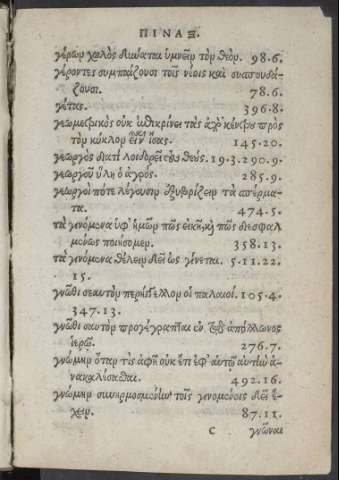 ΠΙΝΑΞ.
γέρων χωλὸς δύναται ὑμνεῖν τὸν θεόν. 98.6.
γέροντες συμπαίζουσι τοῖς νέοις καὶ συσπουδά-
ζουσι. 78.6.
γέτας. 396.8.
γεωμετρικὸς οὐκ ἐπικρίνει τὰς ἀπὸ κέντρου πρὸς
τὸν κύκλον εἶν ἴσας. 145.20.
γεωργὸς διατί λοιδορεῖ τοὺς θεούς. 19.3.290.9.
γεωργοῦ ὕλη ὁ ἀγρός. 285.9.
γεωργοὶ πότε λέγουσιν ὀξυβρίζειν τὰ σπέρμα-
τα. 474.5.
τὰ γινόμενα ὑφ' ἡμῶν πῶς εἰκῆ, καὶ πῶς διεσφαλ
μένως ποιήσομεν. 358.13.
τὰ γινόμενα θέλειν δεῖ ὡς γίνεται. 5.11.22.
15.
γνῶθι σεαυτὸν παρήγγελλον οἱ παλαιοί. 105.4.
347.13.
γνῶθι σαυτὸν προγέγραπται ἐν τῷ ἀπόλλωνος
ἱερῷ. 276.7.
γνώμην ὅταν τις ἀφῇ οὐκ ἔτι ἐφ' αὐτῷ αὐτὴν ἀ-
νακαλέσασθαι. 492.16.
γνώμην συνηρμοσμένην τοῖς γινομένοις δεῖ ἔ-
χειν. 87.11.
C γνῶναι